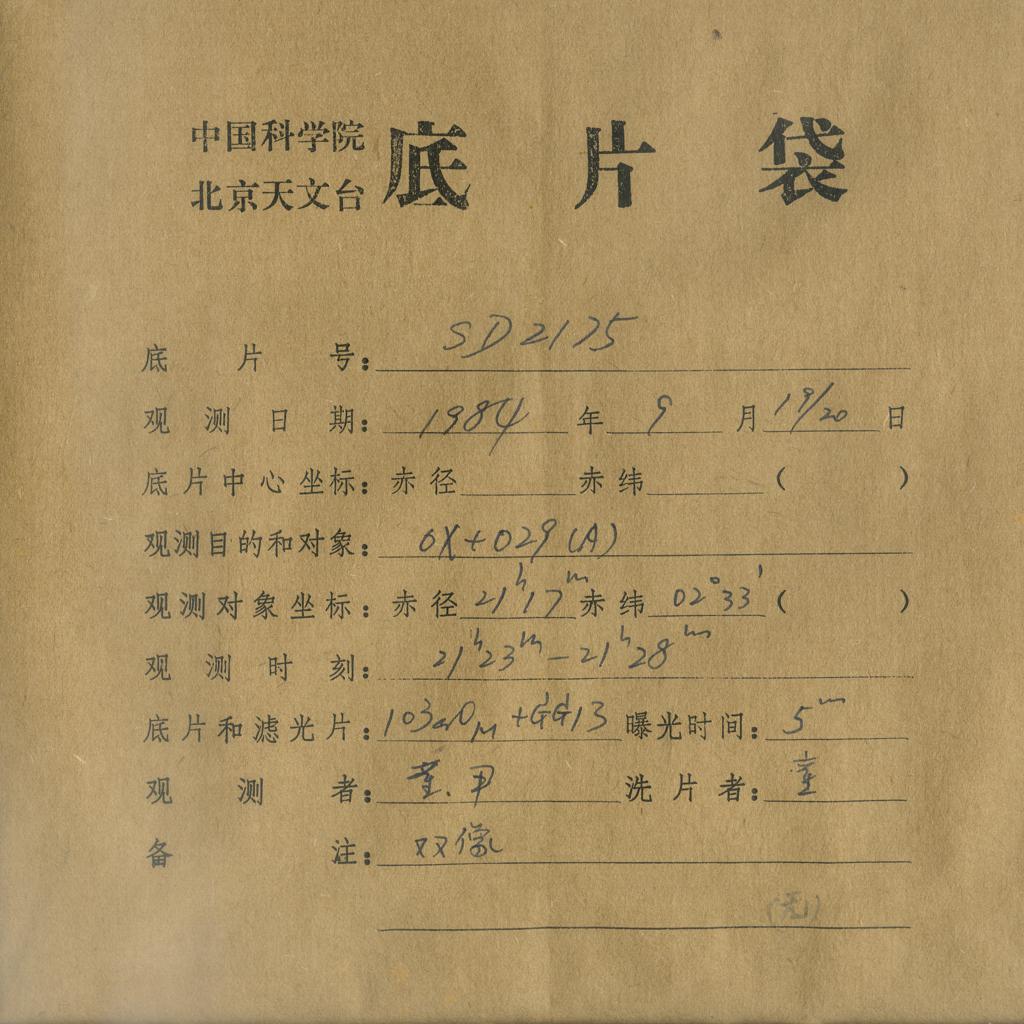 中国科学院
北京天文台
底片袋
底片号：SD2175
观测日期：1984年9月19/20日
底片中心坐标：赤径 赤纬 （ ）
观测目的和对象：OX+029(A)
观测对象坐标：赤径 21ʰ17ᵐ 赤纬 02°33′ （ ）
观测时刻：21ʰ23ᵐ–21ʰ28ᵐ
底片和滤光片：103aO +GG13 曝光时间：5ᵐ
观测者：董、尹 洗片者：董
备注：双像
（无）